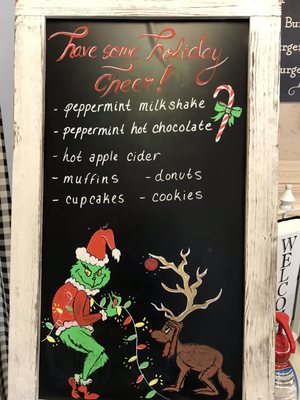 have some holiday
cheer!
- peppermint milkshake
- peppermint hot chocolate
- hot apple cider
- muffins - donuts
- cupcakes - cookies
WELC